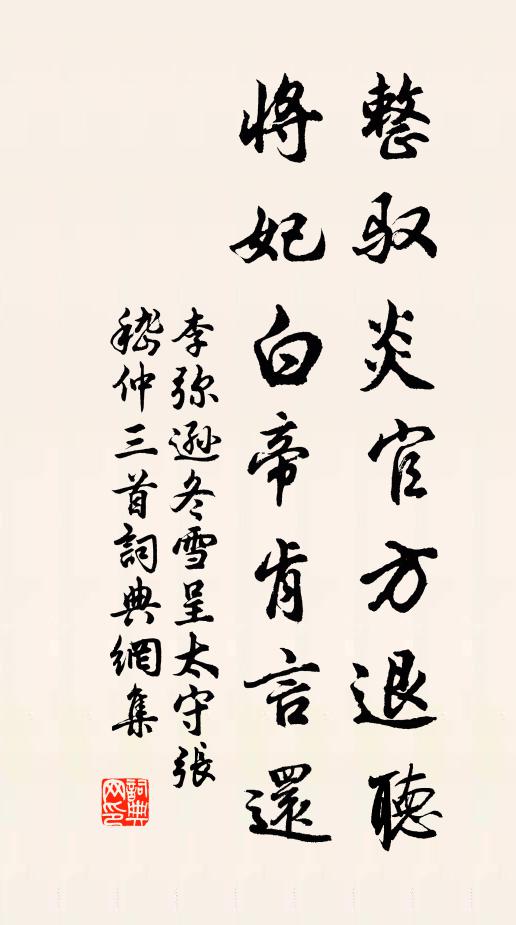 整馭炎官方退聽
將妃白帝肯言還
李弥遜冬雪呈太守張
嵇仲三首詞典網集
詞典
网印